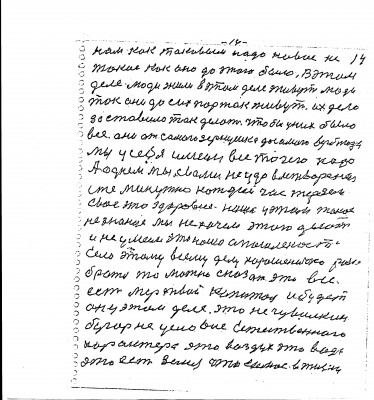 -14-
нам как таковым надо новое не 14
такое как оно до этого было. В этом
деле люди жили в этом деле живут люди
так они до сих пор так живут. их дело
заставило так делать. чтобы у них было
все. они от самого
мы у себя имеем все то чего надо
А одне мы, с вами не удовлетворены
мы минутно каждый час теряем
свое это здоровие. наше у этом такое
незнание мы не хочем этого делать
и не умеем это наша
если этому всему делу хорошенько разо
брать то можно сказать это все.
есть мертвый капитал и будет
он у этом деле. это не чувилкин
бугор не условие Естественного
характера это воздух это вода
это есть земля что самое